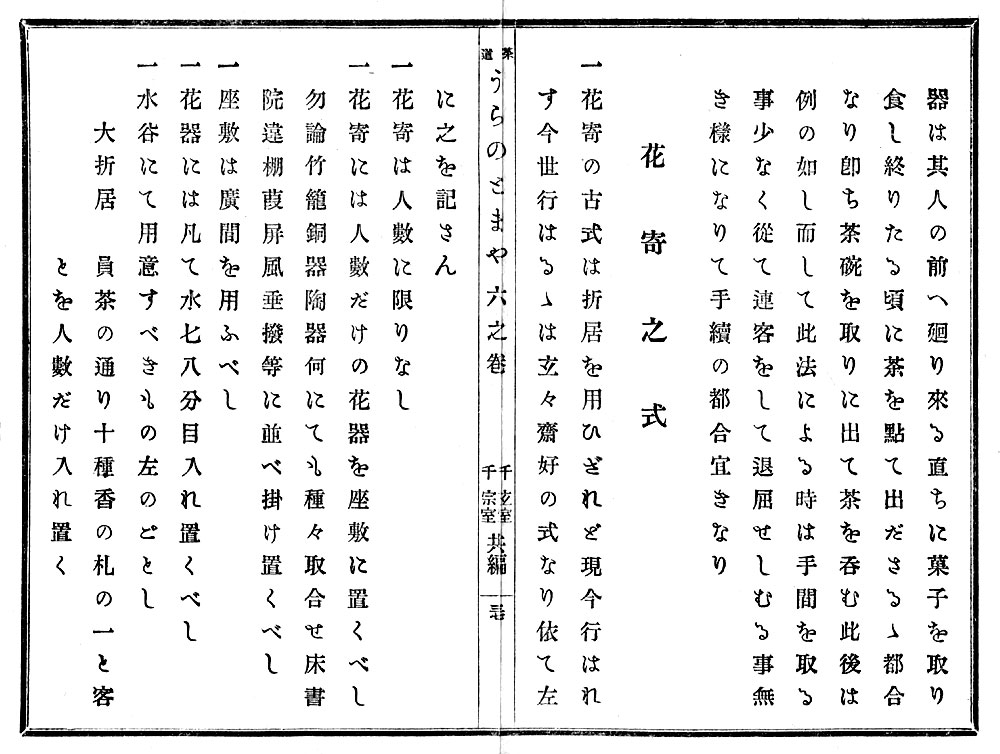 器は其人の前へ廻り來る直ちに菓子を取り
食し終りたる頃に茶を點て出ださるゝ都合
なり卽ち茶碗を取りに出て茶を呑む此後は
例の如し而して此法による時は手間を取る
事少なく從て連客をして退屈せしむる事無
き樣になりて手續の都合宜きなり
花寄之式
一花寄の古式は折居を用ひざれど現今行はれ
ず今世行はるゝは玄々齋好の式なり依て左
茶道
うらのとまや六之卷
千玄室
千宗室
共編
に之を記さん
一花寄は人數に限りなし
一花寄には人數だけの花器を座敷に置くべし
勿論竹籠銅器陶器何にても種々取合せ床書
院違棚葭屏風垂撥等に並べ掛け置くべし
一座敷は廣間を用ふべし
一花器には凡て水七八分目入れ置くべし
一水谷にて用意すべきもの左のごとし
大折居　員茶の通り十種香の札の一と客
とを人數だけ入れ置く